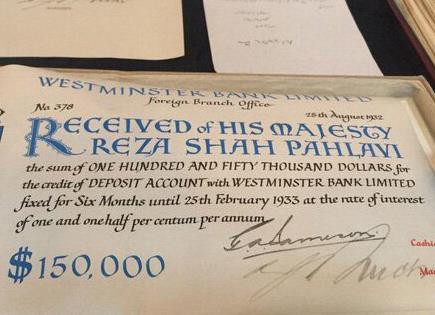 WESTMINSTER BANK LIMITED
Foreign Branch Office
No 378
25th August 1932
RECEIVED of HIS MAJESTY
REZA SHAH PAHLAVI
the sum of ONE HUNDRED AND FIFTY THOUSAND DOLLARS for
the credit of DEPOSIT ACCOUNT with WESTMINSTER BANK LIMITED
fixed for Six Months until 25th February 1933 at the rate of interest
of one and one half per centum per annum
Cashie
$150,000
Ma